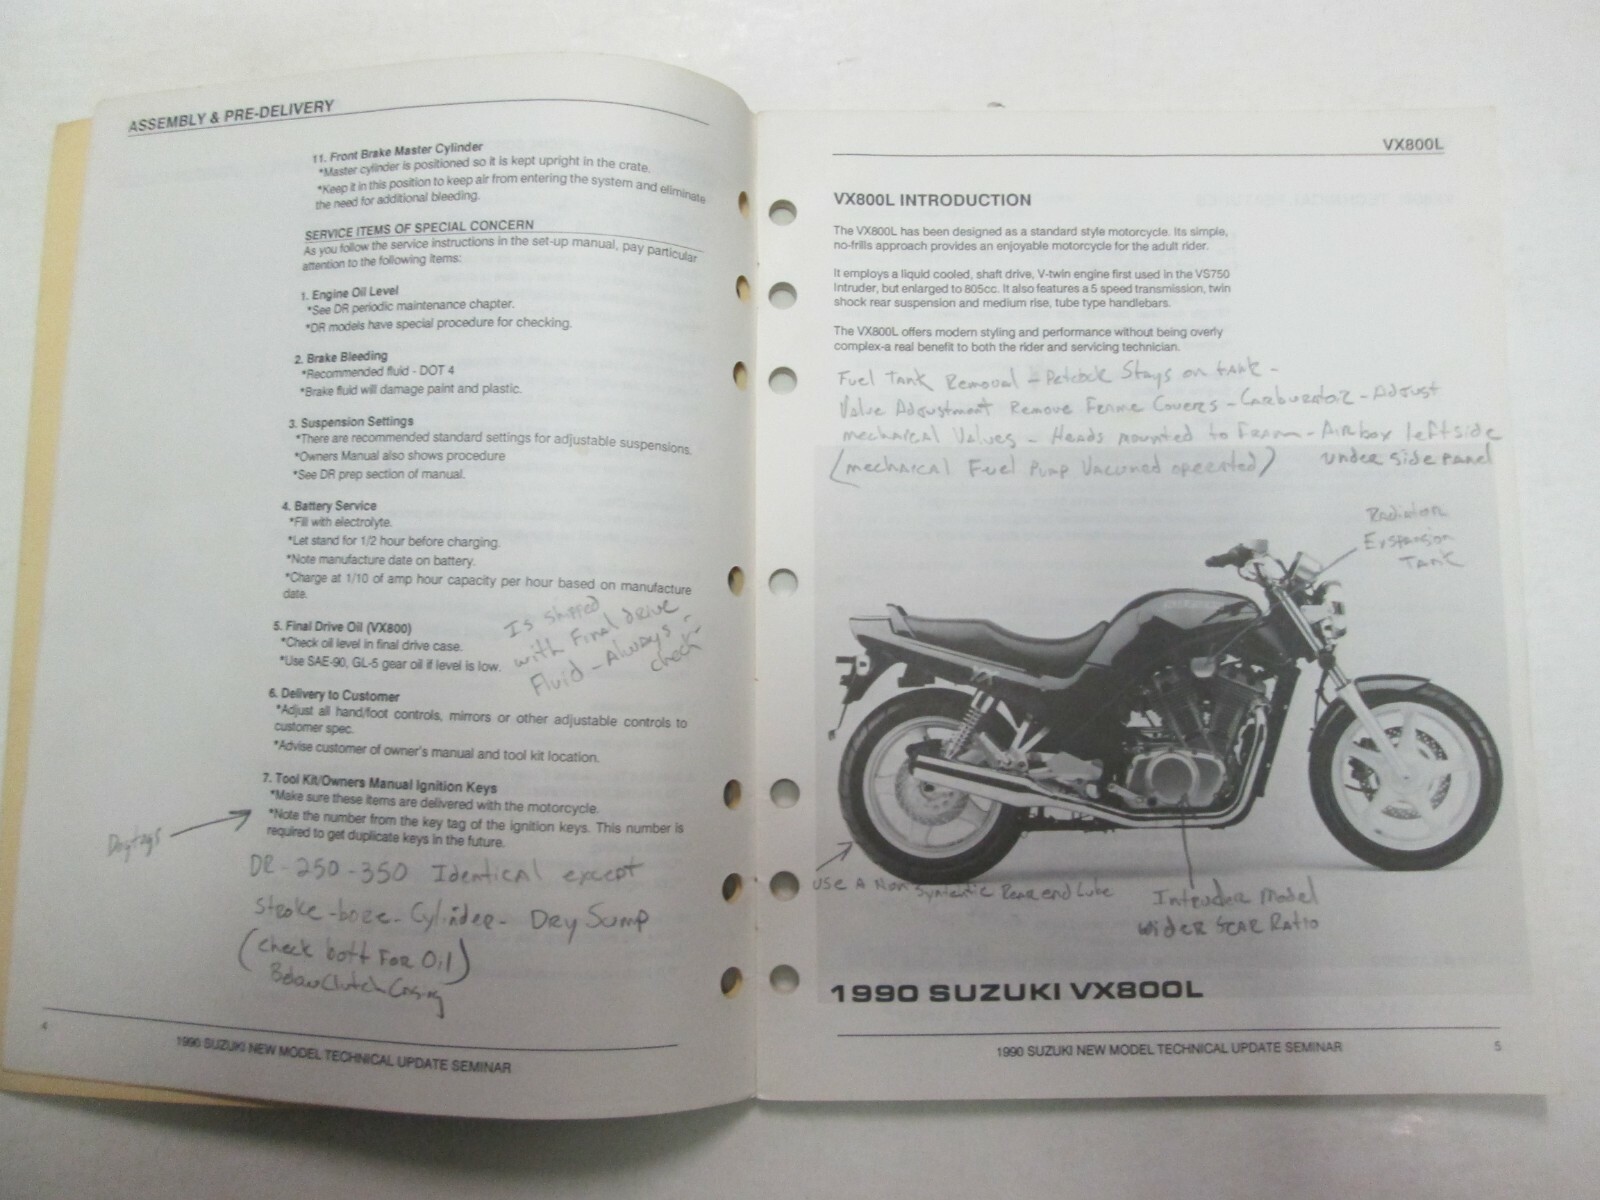 ASSEMBLY & PRE-DELIVERY
11. Front Brake Master Cylinder
*Master cylinder is positioned so it is kept upright in the crate.
*Keep it in this position to keep air from entering the system and eliminate
the need for additional bleeding.
SERVICE ITEMS OF SPECIAL CONCERN
As you follow the service instructions in the set-up manual, pay particular
attention to the following items:
1. Engine Oil Level
*See DR periodic maintenance chapter.
*DR models have special procedure for checking.
2. Brake Bleeding
*Recommended fluid - DOT 4
*Brake fluid will damage paint and plastic.
3. Suspension Settings
*There are recommended standard settings for adjustable suspensions.
*Owners Manual also shows procedure
*See DR prep section of manual.
4. Battery Service
*Fill with electrolyte.
*Let stand for 1/2 hour before charging.
*Note manufacture date on battery.
*Charge at 1/10 of amp hour capacity per hour based on manufacture
date.
5. Final Drive Oil (VX800)
*Check oil level in final drive case.
*Use SAE-90, GL-5 gear oil if level is low.
Is shipped
with Final drive
Fluid - Always -
check
6. Delivery to Customer
*Adjust all hand/foot controls, mirrors or other adjustable controls to
customer spec.
*Advise customer of owner's manual and tool kit location.
7. Tool Kit/Owners Manual Ignition Keys
*Make sure these items are delivered with the motorcycle.
*Note the number from the key tag of the ignition keys. This number is
required to get duplicate keys in the future.
Dogtags
DR-250-350 Identical except
Stroke-bore-Cylinder- Dry Sump
(check bott For Oil)
Below Clutch Casing
4
1990 SUZUKI NEW MODEL TECHNICAL UPDATE SEMINAR
VX800L
VX800L INTRODUCTION
The VX800L has been designed as a standard style motorcycle. Its simple,
no-frills approach provides an enjoyable motorcycle for the adult rider.
It employs a liquid cooled, shaft drive, V-twin engine first used in the VS750
Intruder, but enlarged to 805cc. It also features a 5 speed transmission, twin
shock rear suspension and medium rise, tube type handlebars.
The VX800L offers modern styling and performance without being overly
complex-a real benefit to both the rider and servicing technician.
Fuel Tank Removal - Petcock Stays on tank -
Valve Adjustment Remove Covers - Carburator - Adjust
mechanical Valves - Heads mounted to Fram - Airbox leftside
(mechaical Fuel Pump Vacuned operated) under side panel
Radiator
Exspansion
Tank
Use A Non Syntetic Rear end Lube
Intruder Model
Wider Gear Ratio
1990 SUZUKI VX800L
1990 SUZUKI NEW MODEL TECHNICAL UPDATE SEMINAR
5